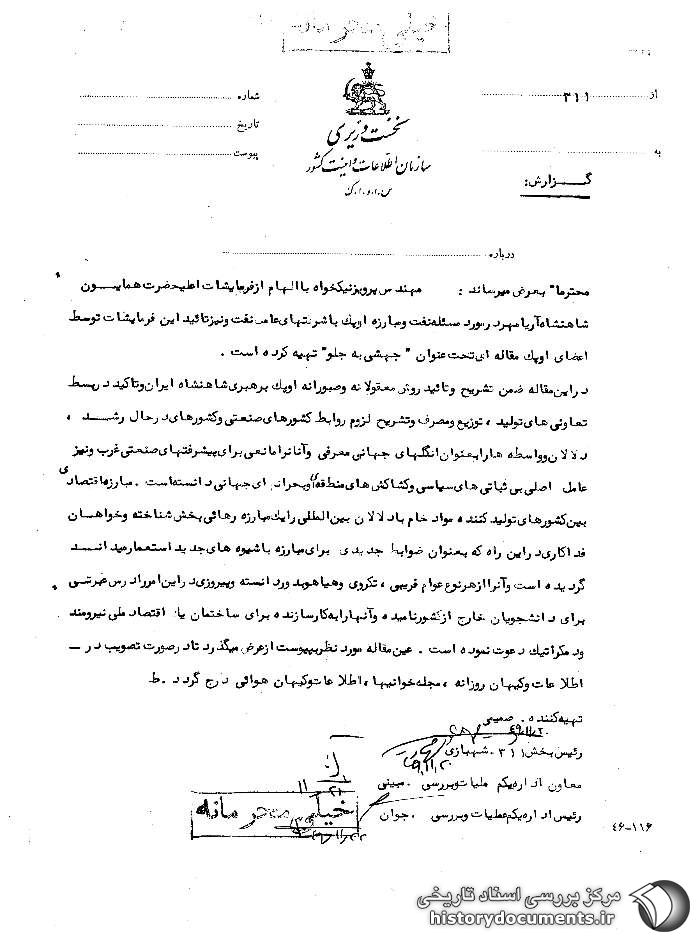 خیلی محرمانه
از ۳۱۱
شماره
تاریخ
به
پیوست
نخست وزیری
سازمان اطلاعات و امنیت کشور
س.ا.و.ا.ک
گزارش:
درباره
محترما" بعرض میرساند : مهندس پرویز نیکخواه با الهام از فرمایشات اعلیحضرت همایون
شاهنشاه آریامهر در مورد مسئله نفت و مبارزه اوپک با شرکتهای عامل نفت و نیز تائید این فرمایشات توسط
اعضای اوپک مقاله ای تحت عنوان " جهشی به جلو" تهیه کرده است .
در این مقاله ضمن تشریح و تائید روش معقولانه و صبورانه اوپک برهبری شاهنشاه ایران و تاکید در بسط
تعاونی های تولید ، توزیع و مصرف و تشریح لزوم روابط کشورهای صنعتی و کشورهای در حال رشد ،
دلالان و واسطه ها را بعنوان انگلهای جهانی معرفی و آنانرا مانعی برای پیشرفتهای صنعتی غرب و نیز
عامل اصلی بی ثباتی های سیاسی و کشاکش های منطقه ای و بحرانهای جهانی دانسته است . مبارزه اقتصادی
بین کشورهای تولید کننده مواد خام با دلالان بین المللی را یک مبارزه رهائی بخش شناخته و خواهان
فداکاری در این راه که بعنوان ضوابط جدیدی برای مبارزه با شیوه های جدید استعمار میداند
گردیده است و آنرا از هر نوع عوام فریبی ، تکروی و هیاهو بدور دانسته و پیروزی در این امر را درس عبرتی
برای دانشجویان خارج از کشور نامیده و آنها را به کار سازنده برای ساختمان یک اقتصاد ملی نیرومند
و دمکراتیک دعوت نموده است . عین مقاله مورد نظر به پیوست از عرض میگذرد تا در صورت تصویب در
اطلاعات و کیهان روزانه ، مجله خواندنیها ، اطلاعات و کیهان هوائی درج گردد . ط
تهیه کننده . صمیمی
۴۹/۱۱/۲۰
رئیس بخش ۳۱۱ . شهبازی
معاون اداره یکم عملیات و بررسی . مبینی
رئیس اداره یکم عملیات و بررسی . جوان
خیلی محرمانه
۴۶-۱۱۶
مرکز بررسی اسناد تاریخی
historydocuments.ir